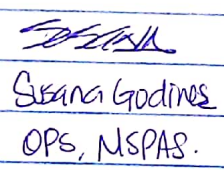 Susana Godines
OPS, MSPAS.